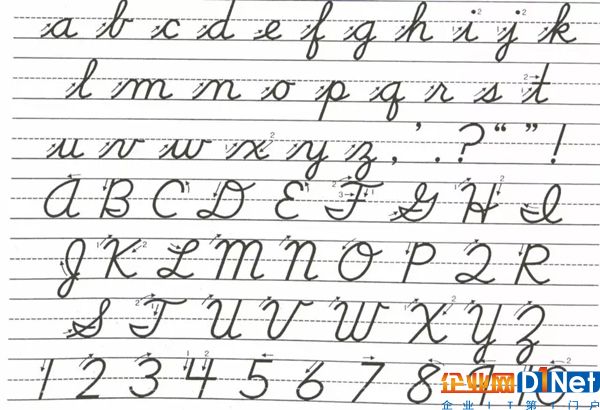 a b c d e f g h i j k
l m n o p q r s t
u v w x y z , ' . ? “ ” !
A B C D E F G H I
J K L M N O P Q R
S T U V W X Y Z
1 2 3 4 5 6 7 8 9 10
企业网D1Net
企业IT第1门户